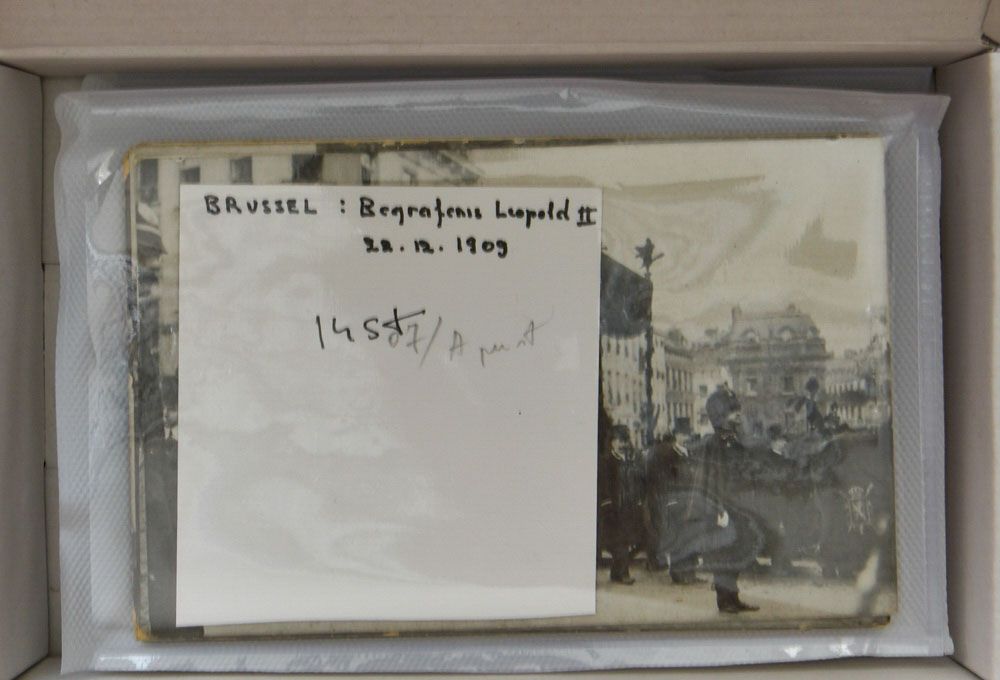 BRUSSEL : Begrafenis Leopold II
22.12.1909
14 St